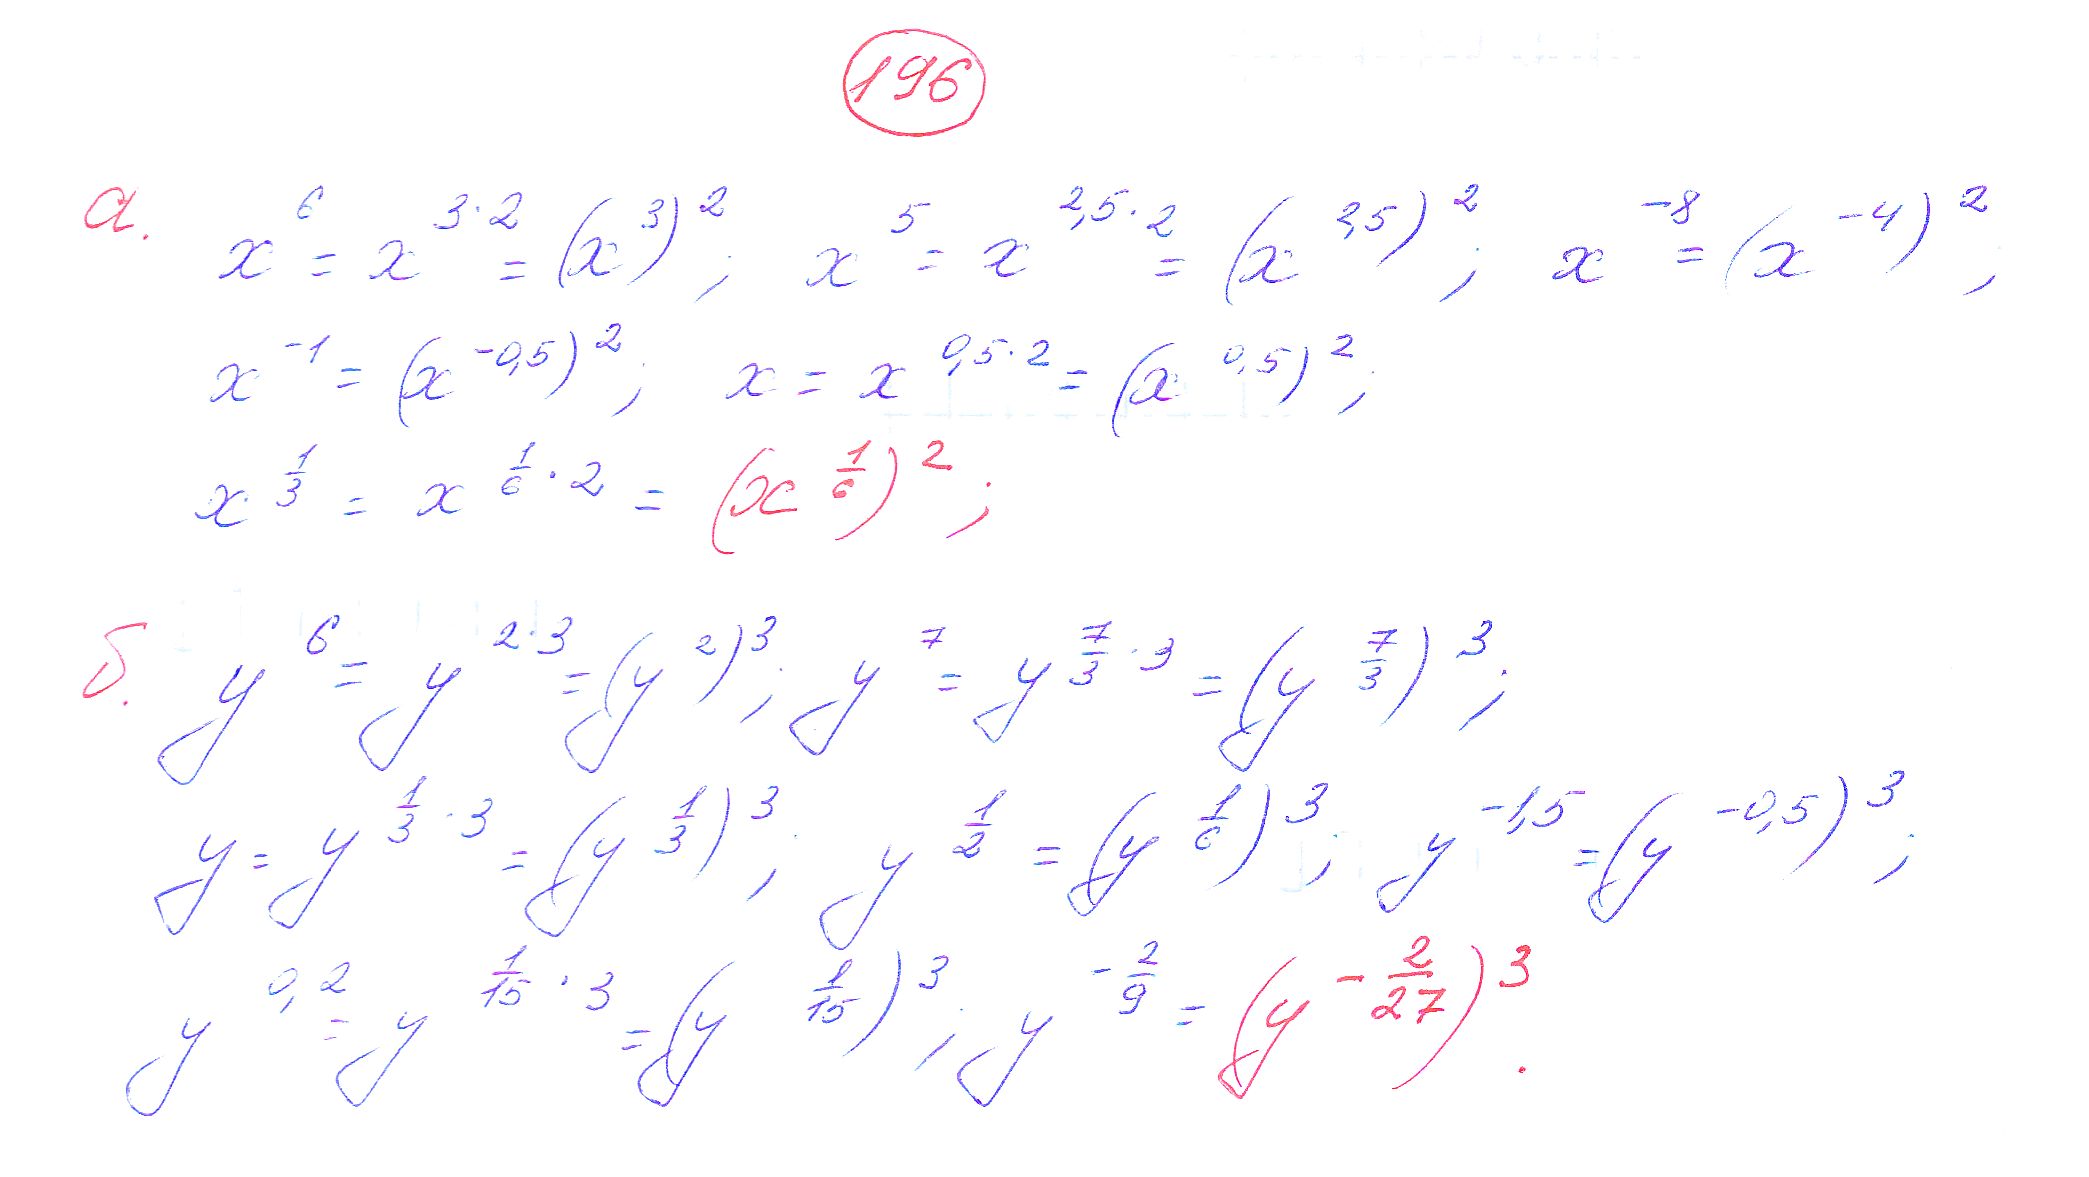 196
а. x^6 = x^{3·2} = (x^3)^2; x^5 = x^{2,5·2} = (x^{2,5})^2; x^{-8} = (x^{-4})^2;
x^{-1} = (x^{-0,5})^2; x = x^{0,5·2} = (x^{0,5})^2;
x^{1/3} = x^{1/6·2} = (x^{1/6})^2;
б. y^6 = y^{2·3} = (y^2)^3; y^7 = y^{7/3·3} = (y^{7/3})^3;
y = y^{1/3·3} = (y^{1/3})^3; y^{1/2} = (y^{1/6})^3; y^{-1,5} = (y^{-0,5})^3;
y^{0,2} = y^{1/15·3} = (y^{1/15})^3; y^{-2/9} = (y^{-2/27})^3.